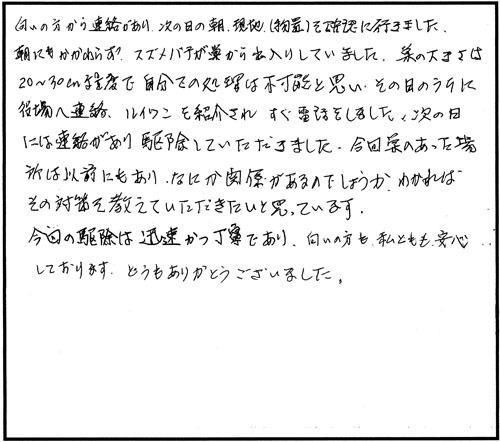 向いの方から連絡があり、次の日の朝、現地(物置)を確認に行きました。
朝にもかかわらず、スズメバチが巣から出入りしていました。巣の大きさは
20～30cm程度で自分での処理は不可能と思い、その日のうちに
役場へ連絡、ルイワンを紹介され すぐ電話をしました。次の日
には連絡があり駆除していただきました。今回巣のあった場
所は以前にもあり、なにか関係があるのでしょうか、わかれば
その対策を教えていただきたいと思っています。
今回の駆除は迅速かつ丁寧であり、向いの方も、私どもも、安心
しております。どうもありがとうございました。